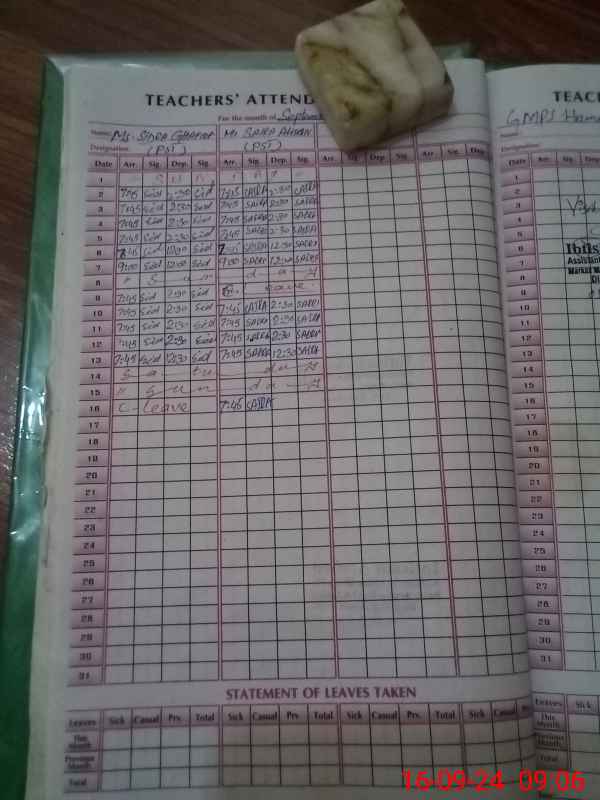 TEACHERS' ATTEND
TEAC
For the month of September
GMPS
Name: Ms. SIDRA Ms SAIRA
Designation: (PST) (PST)
Designation:
Date Arr. Sig. Dep. Sig. Arr. Sig. Dep. Sig. Arr. Sig. Dep. Sig. Arr. Sig. Dep.
Date Arr. Sig.
1
1
2 7:45 Sid 2:30 Sid 7:45 SAIRA 2:30 SAIRA
2
3 7:45 Sid 2:30 Sid 7:45 SAIRA 2:30 SAIRA
3
4 7:45 Sid 2:30 Sid 7:45 SAIRA 2:30 SAIRA
4
5 7:45 Sid 2:30 Sid 7:45 SAIRA 2:30 SAIRA
5
6 7:45 Sid 12:00 Sid 7:45 SAIRA 12:30 SAIRA
6
Assistant
7 9:00 Sid 12:00 Sid 9:00 SAIRA 12:00 SAIRA
7
8 " S u n d a y
8
9 7:45 Sid 2:30 Sid C. leave
9
10 7:45 Sid 2:30 Sid 7:45 SAIRA 2:30 SAIRA
10
11 7:45 Sid 2:30 Sid 7:45 SAIRA 2:30 SAIRA
11
12 7:45 Sid 2:30 Sid 7:45 SAIRA 2:30 SAIRA
12
13 7:45 Sid 12:30 Sid 7:45 SAIRA 12:30 SAIRA
13
14 S a tu r da y
14
15 " S u n da y
15
16 C - leave 7:45 SAIRA
16
17
17
18
18
19
19
20
20
21
21
22
22
23
23
24
24
25
25
26
26
27
27
28
28
29
29
30
30
31
31
STATEMENT OF LEAVES TAKEN
Leaves Sick Casual Prv. Total Sick Casual Prv. Total Sick Casual Prv. Total Sick Casual Prv.
Leaves Sick
This Month
This Month
Previous Month
Previous Month
Total
Total
16-09-24 09:06